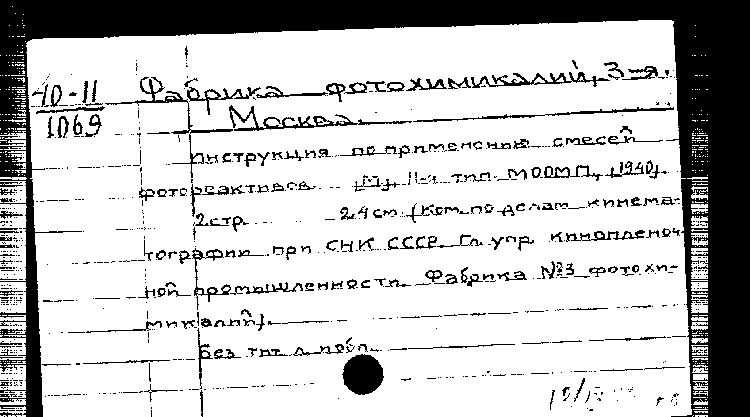 40-11
1069
Фабрика фотохимикалий, 3-я.
Москва.
Инструкция по применению смесей
фотореактивов. [М], 11-я тип. МООМП, [1940].
2 стр. 24 см. (Ком. по делам кинема-
тографии при СНК СССР. Гл. упр. кинопленоч-
ной промышленности. Фабрика №3 фотохи-
микалий).
Без тит. л. и обл.